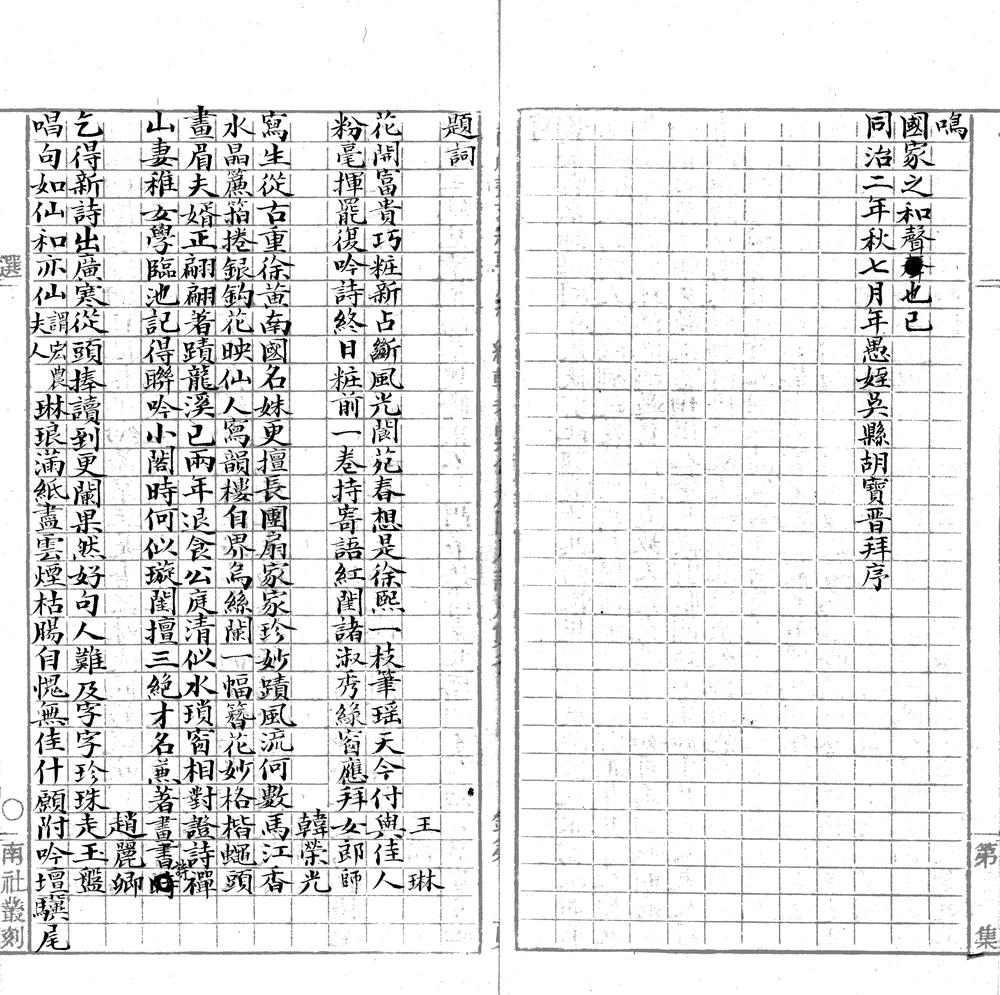 鳴
國家之和聲也已
同治二年秋七月年愚姪吳縣胡寶晉拜序
第
集
題詞
王琳
花開富貴巧粧新占斷風光閬苑春想是徐熙一枝筆瑶天今付與佳人
粉毫揮罷復吟詩終日粧前一卷持寄語紅閨諸淑秀綠窗應拜女郎師
韓榮光
寫生從古重徐黃南國名姝更擅長團扇家家珍妙蹟風流何數馬江香
水晶簾箔捲銀鈎花映仙人寫韻樓自界烏絲闌一幅簪花妙格楷蠅頭
畫眉夫婿正翩翩著蹟龍溪已兩年退食公庭清似水瑣窗相對證詩禪
山妻稚女學臨池記得聯吟小閣時何似璇閨擅三絕才名蒸著畫書詩
趙麗卿
乞得新詩出廣寒從頭捧讀到更闌果然好句人難及字字珍珠走玉盤
唱句如仙和亦仙謂宏農夫人琳琅滿紙盡雲煙枯腸自愧無佳什願附吟壇驥尾
選
〇
南社叢刻